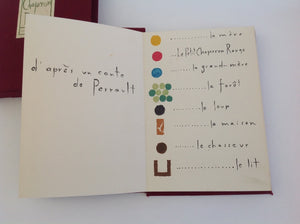 Chaperon
d'après un conte
de Perrault
..........la mère
..Le Petit Chaperon Rouge
........la grand-mère
........la forêt
..........le loup
.........la maison
........le chasseur
............le lit